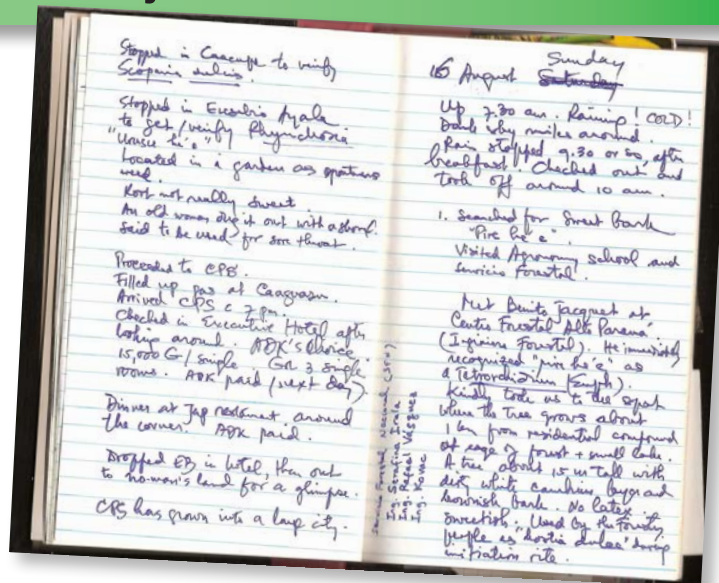 Stopped in Caacupe to verify
Scoparia dulcis.
Stopped in Eusebio Ayala
to get/verify Rhynchosia
"Urusu he'e"
Located in a garden as spontaneous
weed.
Root not really sweet.
An old woman dug it out with a shovel.
Said to be used for sore throat.
Proceeded to CPS.
Filled up gas at Caaguazu.
Arrived CPS c 7 pm.
Checked in Executive Hotel after
looking around. ADK's choice.
15,000 G/single. Got 3 single
rooms. ADK paid (next day).
Dinner at Jap restaurant around
the corner. ADK paid.
Dropped EB in hotel, then out
to no-man's land for a glimpse.
CPS has grown into a large city.
Servicio Forestal Nacional (SFN)
Ing. Serafina Irala
Ing. Vásquez
Ing. Kovac
Sunday
16 August Saturday
Up 7.30 am. Raining! COLD!
Dark sky miles around.
Rain stopped 9.30 or so, after
breakfast. Checked out and
took off around 10 am.
1. Searched for Sweet bark
"Pire he'e".
Visited Agronomy school and
Servicio Forestal.
Met Benito Jacquet at
Centro Forestal Alto Parana
(Ingeniero Forestal). He immediately
recognized "pire he'e" as
a Tetrorchidium (Euph).
Kindly took us to the spot
where the tree grows about
1 km from residential compound
at edge of forest + small lake.
A tree about 15 m tall with
dirty white and
brownish bark. No latex.
Sweetish. Used by the forestry
people as "hostia dulce" during
initiation rite.